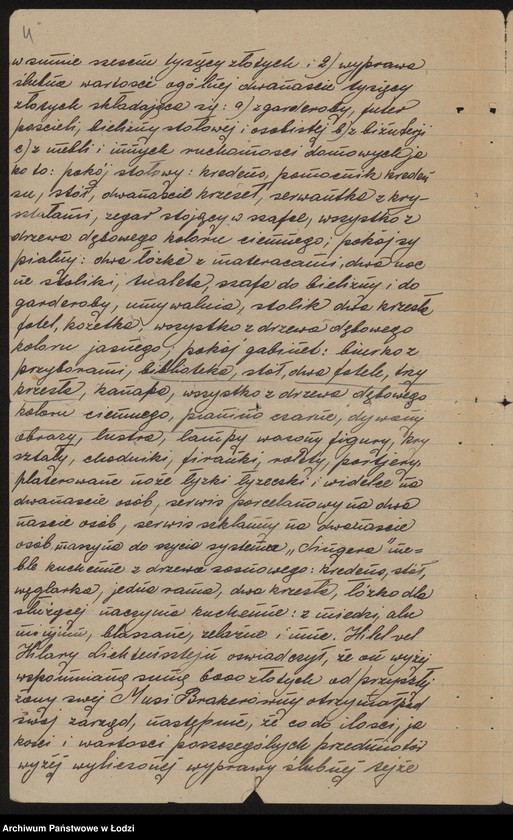 4
w sumie sześciu tysięcy złotych i 2) wyprawa
ślubna wartości ogólnej dwanaście tysięcy
złotych składająca się: a) z garderoby, futer
pościeli, bielizny stołowej i osobistej b) z biżuterji
c) z mebli i innych ruchomości domowych ja
ko to: pokój stołowy: kredens, pomocnik kreden
su, stół, dwanaście krzeseł, serwantka z kry-
ształami, zegar stojący w szafce, wszystko z
drzewa dębowego koloru ciemnego; pokój sy
pialny: dwa łóżka z materacami, dwa noc
ne stoliki, tualeta, szafa do bielizny i do
garderoby, umywalnia, stolik dwa krzesła
fotel, kozetka, wszystko z drzewa dębowego
koloru jasnego, pokój gabinet: biurko z
przyborami, biblioteka, stół, dwa fotele, trzy
krzesła, kanapa, wszystko z drzewa dębowego
koloru ciemnego, pianino czarne, dywany
obrazy, lustra, lampy wazony figury, kry
ształy, chodniki, firanki, rolety, portjery,
platerowane noże łyżki łyżeczki i widelce na
dwanaście osób, serwis porcelanowy na dwa
naście osób, serwis szklanny na dwanaście
osób, maszyna do szycia systemu „Singera" me=
ble kuchenne z drzewa sosnowego: kredens, stół,
węglarka, jedna rama, dwa krzesła, łóżko dla
służącej naczynia kuchenne: z miedzi, alu
minjum, blaszane, żelazne i inne. Hilel vel
Hilary Lichtensztejn oświadczył, że on wyżej
wspomnianą sumę 6000 złotych od przyszłej
żony swej Musi Brakerówny otrzymał pod
swój zarząd, następnie, że co do ilości, ja
kości i wartości poszczególnych przedmiotów
wyżej wyliczonej wyprawy ślubnej tejże
Archiwum Państwowe w Łodzi